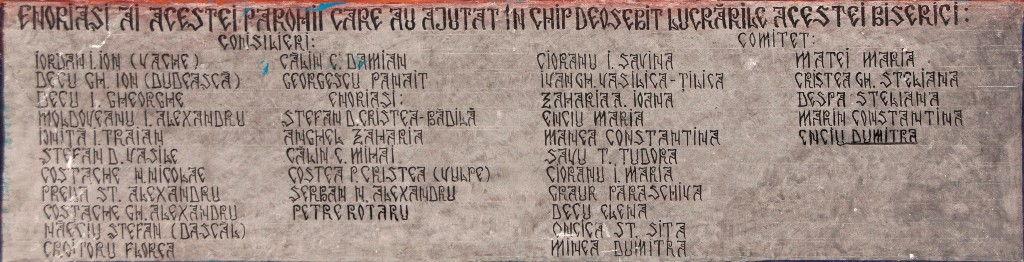 ENORIAȘI AI ACESTEI PAROHII CARE AU AJUTAT ÎN CHIP DEOSEBIT LUCRĂRILE ACESTEI BISERICI:
CONSILIERI:
IORDAN I. ION (VACHE)
DECU GH. ION (DUDEASCA)
DECU I. GHEORGHE
MOLDOVEANU I. ALEXANDRU
IONIȚĂ I. TRAIAN
ȘTEFAN D. VASILE
COSTACHE N. NICOLAE
PREDA ST. ALEXANDRU
COSTACHE GH. ALEXANDRU
NAECIU ȘTEFAN (DASCĂL)
CROITORU FLOREA
CĂLIN C. DAMIAN
GEORGESCU PANAIT
ENORIAȘI:
ȘTEFAN D. CRISTEA-BĂDILĂ
ANGHEL ZAHARIA
CĂLIN C. MIHAI
COSTEA P. CRISTEA (VULPE)
ȘERBAN N. ALEXANDRU
PETRE ROTARU
COMITET:
CIORANU I. SAVINA
IVAN GH. VASILICA-ȚILICA
ZAHARIA A. IOANA
ENCIU MARIA
MANEA CONSTANTINA
SAVU T. TUDORA
CIORANU I. MARIA
GRAUR PARASCHIVA
DECU ELENA
ONCICA ST. SITA
MINEA DUMITRA
MATEI MARIA
CRISTEA GH. STELIANA
DESPA STELIANA
MARIN CONSTANTINA
ENCIU DUMITRA